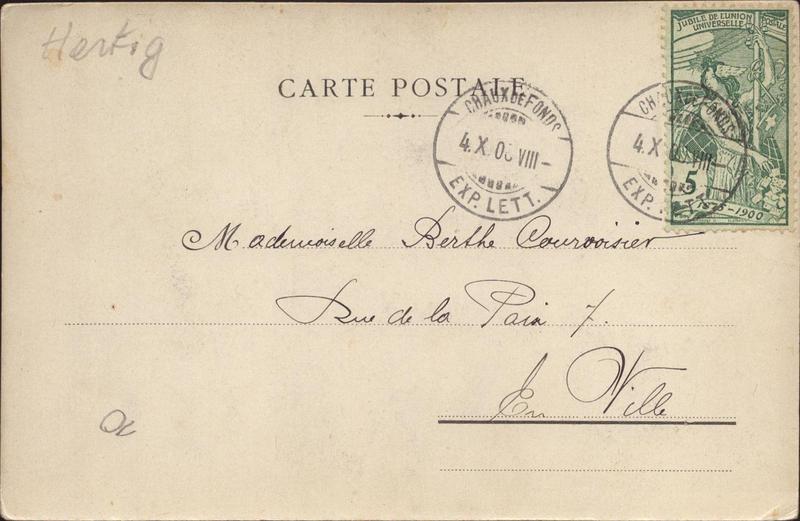 Hertig
JUBILÉ DE L'UNION
UNIVERSELLE POSTALE
CARTE POSTALE
CHAUX DE FONDS
4.X.00 VIII–
EXP. LETT.
CHAUX DE FONDS
4.X.00 VIII–
EXP. LETT.
5
1875–1900
Mademoiselle Berthe Courvoisier
Rue de la Paix 7.
En Ville